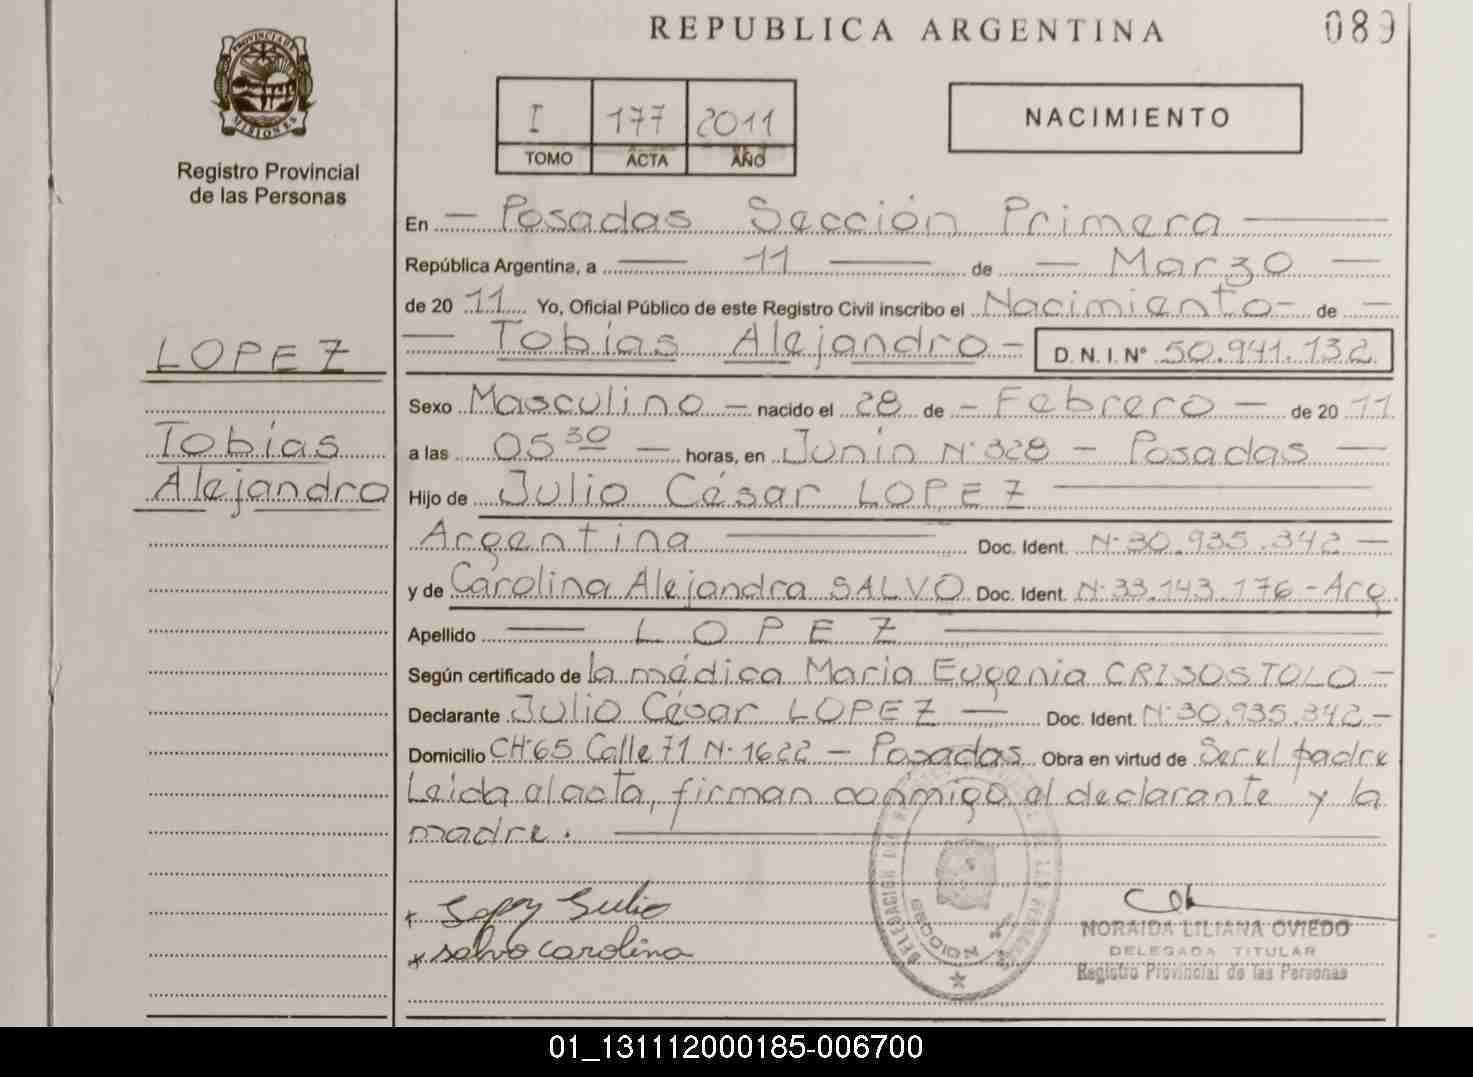 REPUBLICA ARGENTINA
089
PROVINCIA DE
MISIONES
Registro Provincial
de las Personas
I 177 2011
TOMO ACTA AÑO
NACIMIENTO
En — Posadas Sección Primera —
República Argentina, a — 11 — de — Marzo —
de 20 11 Yo, Oficial Público de este Registro Civil inscribo el Nacimiento — de —
— Tobías Alejandro — D. N. I. Nº 50.941.132
LOPEZ
Tobías
Alejandro
Sexo Masculino — nacido el 28 de — Febrero — de 20 11
a las 05 30 — horas, en Junín Nº 328 — Posadas —
Hijo de Julio César LOPEZ —
Argentina — Doc. Ident. Nº 30.935.342 —
y de Carolina Alejandra SALVO Doc. Ident. Nº 33.143.176 - Arg.
Apellido — LOPEZ —
Según certificado de la médica Maria Eugenia CRISOSTOLO —
Declarante Julio César LOPEZ — Doc. Ident. Nº 30.935.342 —
Domicilio CHº 65 Calle 71 Nº 1622 — Posadas Obra en virtud de Ser el padre
Leida el acta, firman conmigo el declarante y la
madre. —
x Lopez Julio
x Salvo Carolina
DELEGACION
SECCION
NORAIDA LILIANA OVIEDO
DELEGADA TITULAR
Registro Provincial de las Personas
01_131112000185-006700